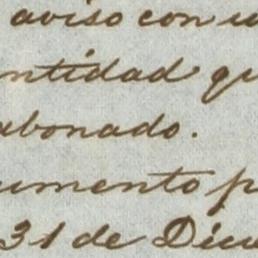 aviso con u
ntidad qu
abonado.
umento p
31 de Dici